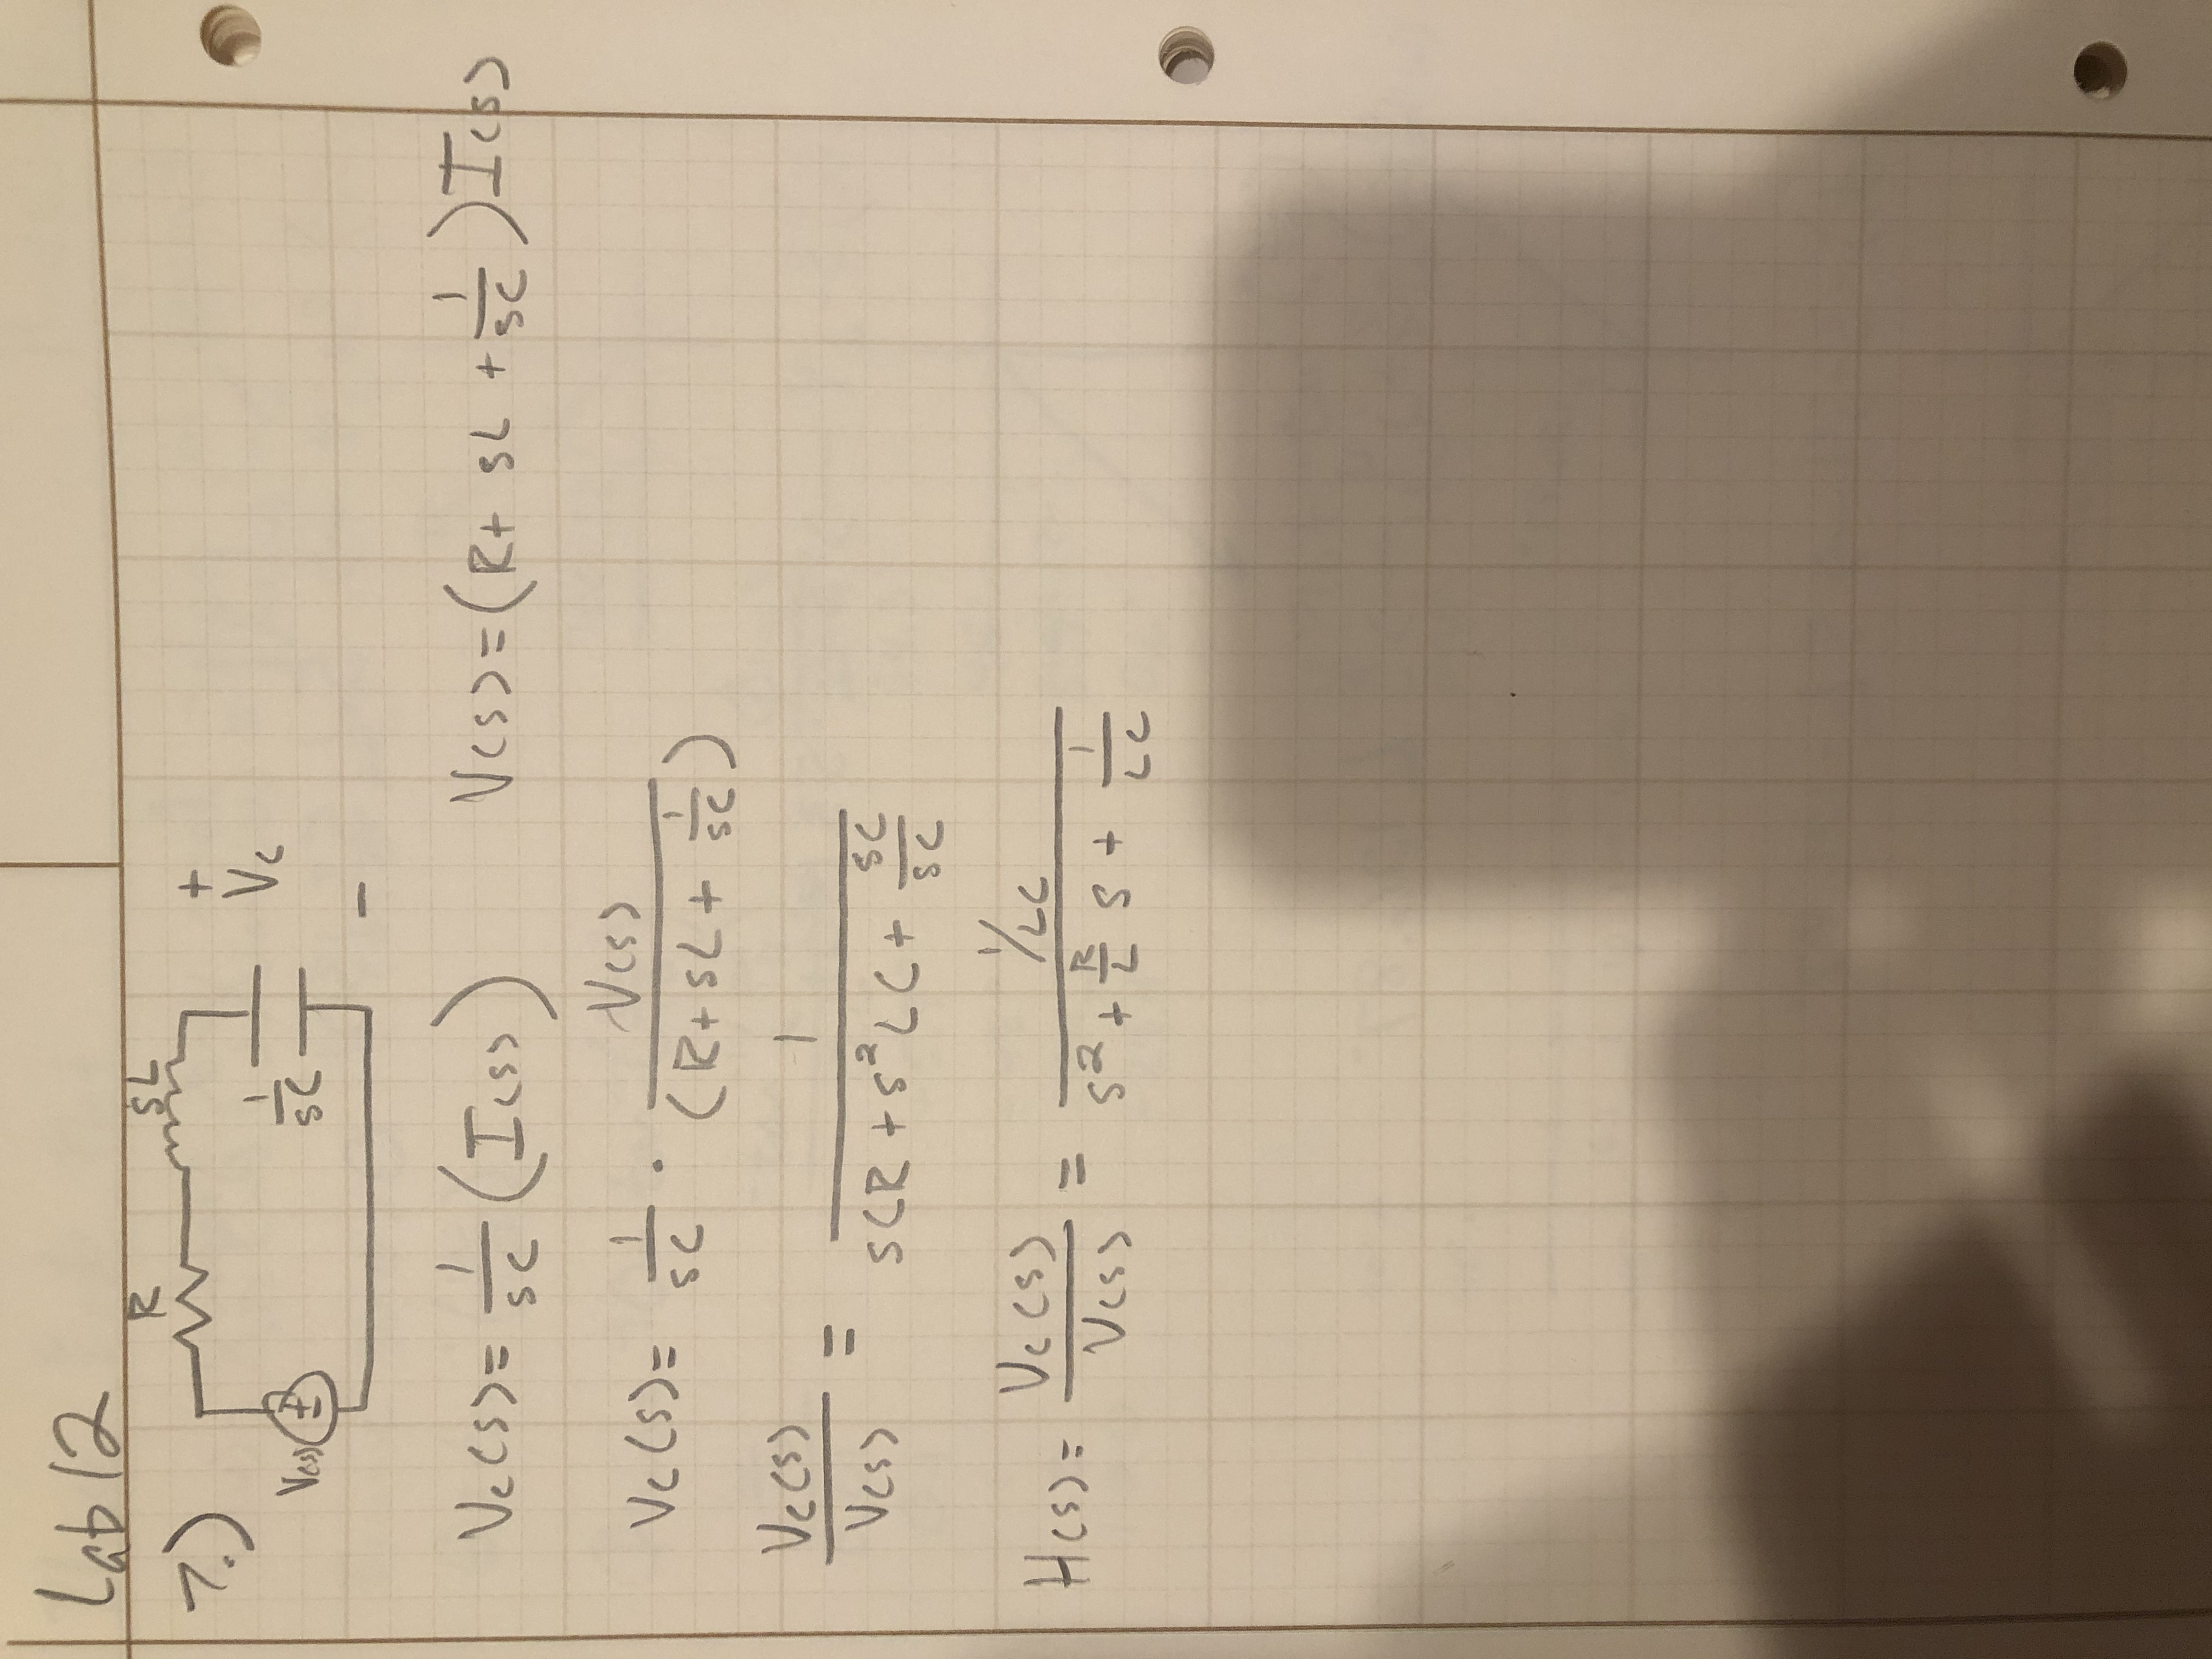 Lab 12
7.)
R
SL
V(s)
+
-
1/SC
+
Vc
-
Vc(s) = 1/SC (I(s))    V(s) = (R + SL + 1/SC) I(s)
Vc(s) = 1/SC · V(s)/(R + SL + 1/SC)
Vc(s)/V(s) = 1/(SCR + S²LC + SC/SC)
H(s) = Vc(s)/V(s) = (1/LC)/(S² + R/L S + 1/LC)